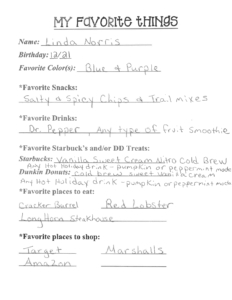 MY FAVORITE THINGS
Name: Linda Norris
Birthday: 12/21
Favorite Color(s): Blue & Purple
*Favorite Snacks:
Salty & Spicy Chips & Trail mixes
*Favorite Drinks:
Dr. Pepper, Any type of fruit smoothie
*Favorite Starbuck's and/or DD Treats:
Starbucks: Vanilla Sweet Cream Nitro Cold Brew
Any Hot Holiday drink - pumpkin or peppermint mocha
Dunkin Donuts: Cold brew sweet cream
Any Hot Holiday drink - pumpkin or peppermint mocha
*Favorite places to eat:
Cracker Barrel Red Lobster
LongHorn Steakhouse
*Favorite places to shop:
Target Marshalls
Amazon